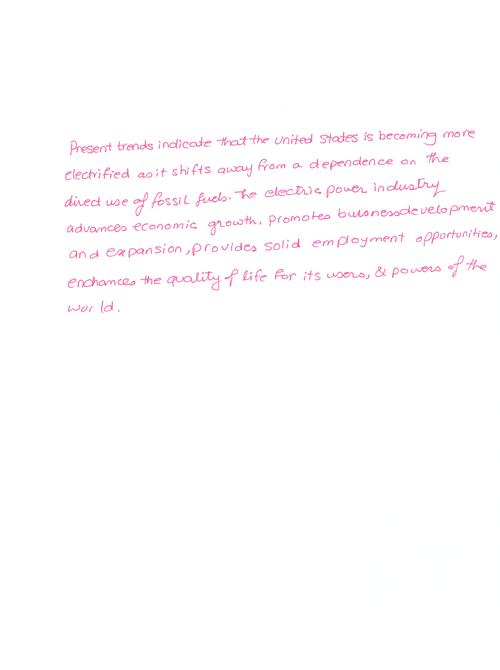 Present trends indicate that the United States is becoming more
electrified as it shifts away from a dependence on the
direct use of fossil fuels. The electric power industry
advances economic growth, promotes buisnessdevelopment
and expansion, provides solid employment opportunities,
enchances the quality of life for its users, & powers of the
world.